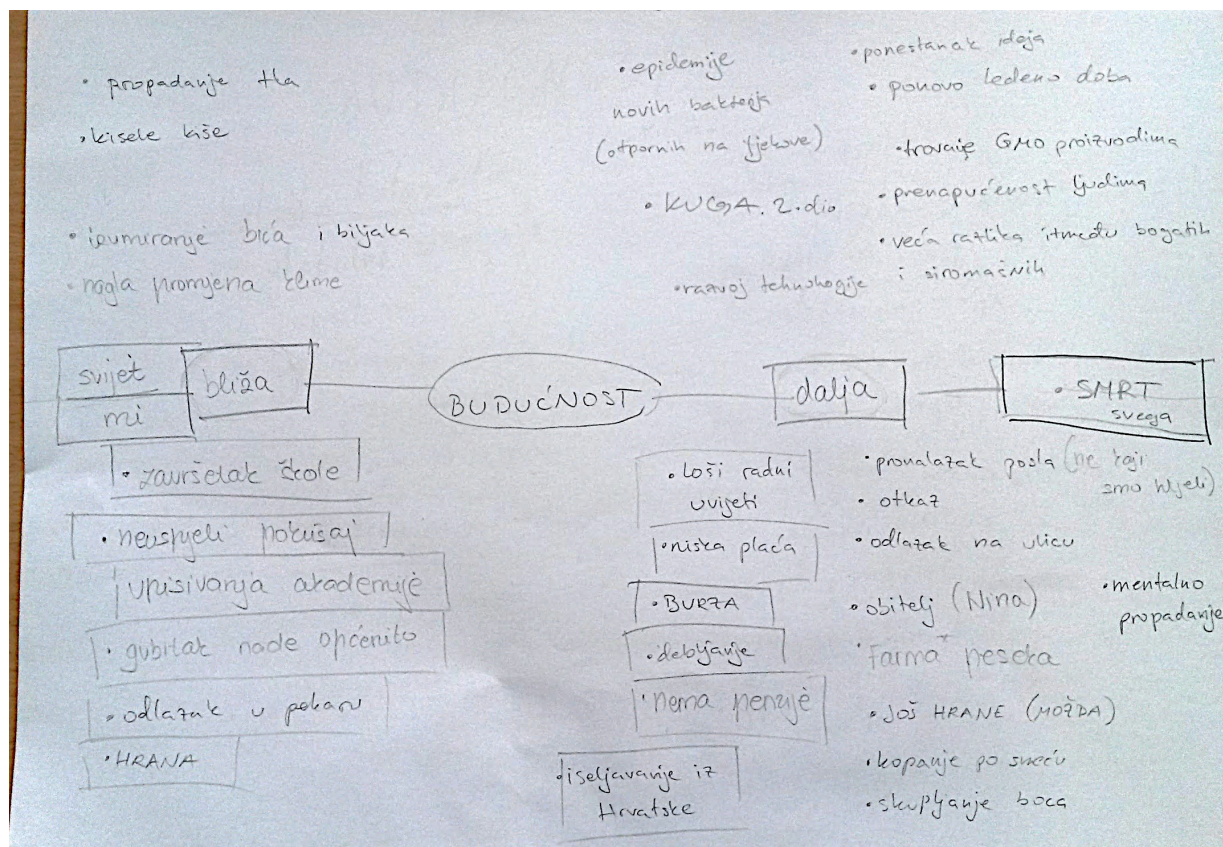 • propadanje tla
• kisele kiše
• izumiranje bića i biljaka
• nagla promjena klime
• epidemije
novih bakterija
(otpornih na ljekove)
• KUGA. 2. dio
• razvoj tehnologije
• ponestanak ideja
• ponovo ledeno doba
• trovanje GMO proizvodima
• prenapučenost ljudima
• veća razlika između bogatih
i siromašnih
svijet
mi
bliža
BUDUĆNOST
dalja
• SMRT
svega
• završetak škole
• neuspjeli pokušaj
upisivanja akademije
• gubitak nade općenito
• odlazak u pekaru
• HRANA
• Loši radni
uvijeti
• niska plaća
• BURZA
• debljanje
• nema penzije
• iseljavanje iz
Hrvatske
• pronalazak posla (ne koji
smo htjeli)
• otkaz
• odlazak na ulicu
• obitelj (Nina)
• farma peseka
• JOŠ HRANE (MOŽDA)
• kopanje po smeću
• skupljanje boca
• mentalno
propadanje